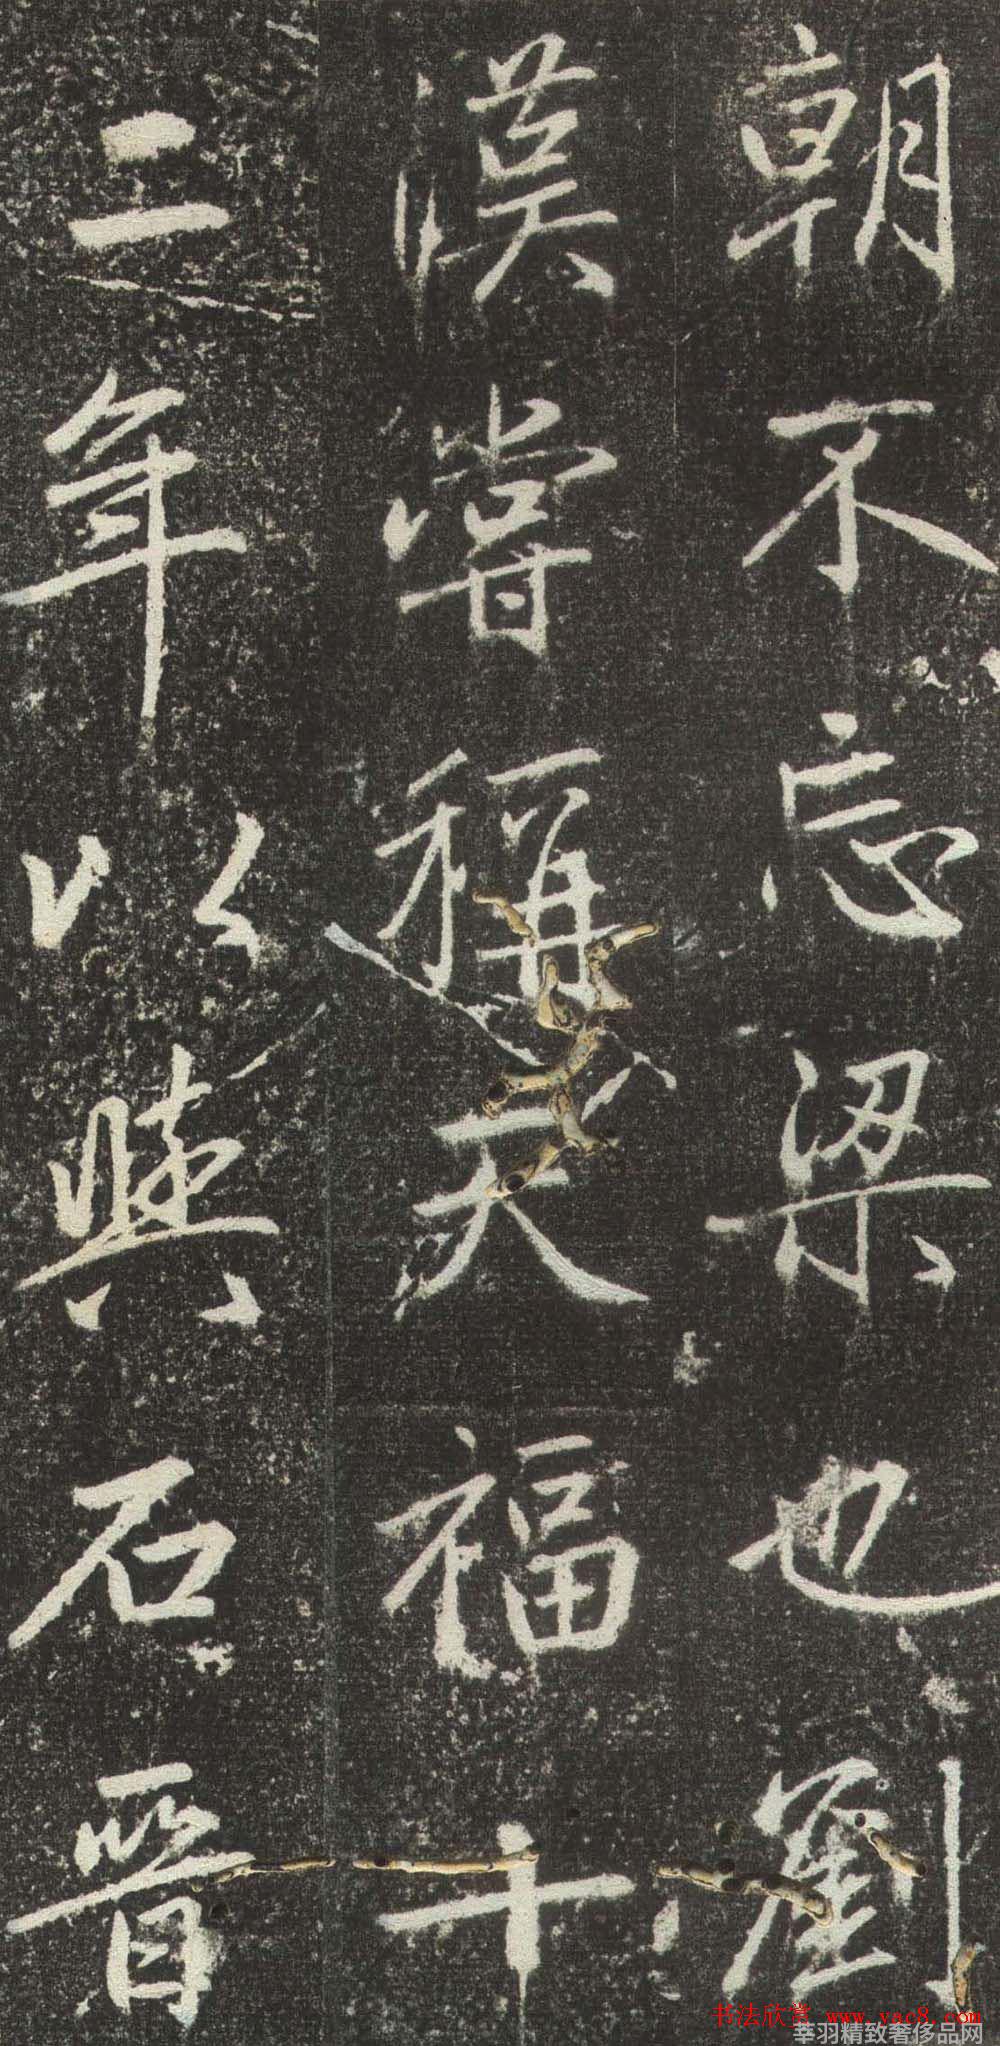 朝不忘梁也劉
漢嘗稱天福十
二年以與石晉
书法欣赏 www.yac8.com
莘羽精致奢侈品网